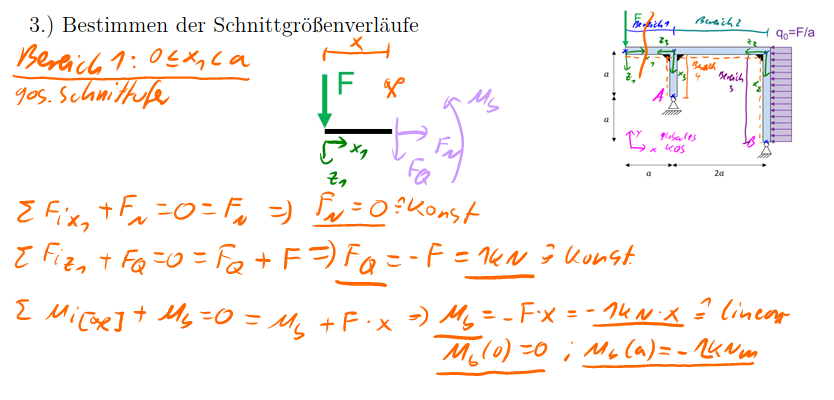 3.) Bestimmen der Schnittgrößenverläufe
Bereich 1: 0 ≤ x₁ < a
pos. Schnittufer
x
F
α
M_b
F_N
F_Q
x₁
z₁
F
Bereich 1
Bereich 2
q₀=F/a
z₃
z₂
x₁
z₁
x₃
x₂
Bereich
4
Bereich
3
A
B
a
a
y
x
globales
KOS
a
2a
Σ F_ix₁ + F_N = 0 = F_N => F_N = 0 ≙ konst
Σ F_iz₁ + F_Q = 0 = F_Q + F => F_Q = -F = 1kN ≙ konst.
Σ M_i[α] + M_b = 0 = M_b + F·x => M_b = -F·x = -1kN·x ≙ linear
M_b(0) = 0 ; M_b(a) = -1kNm